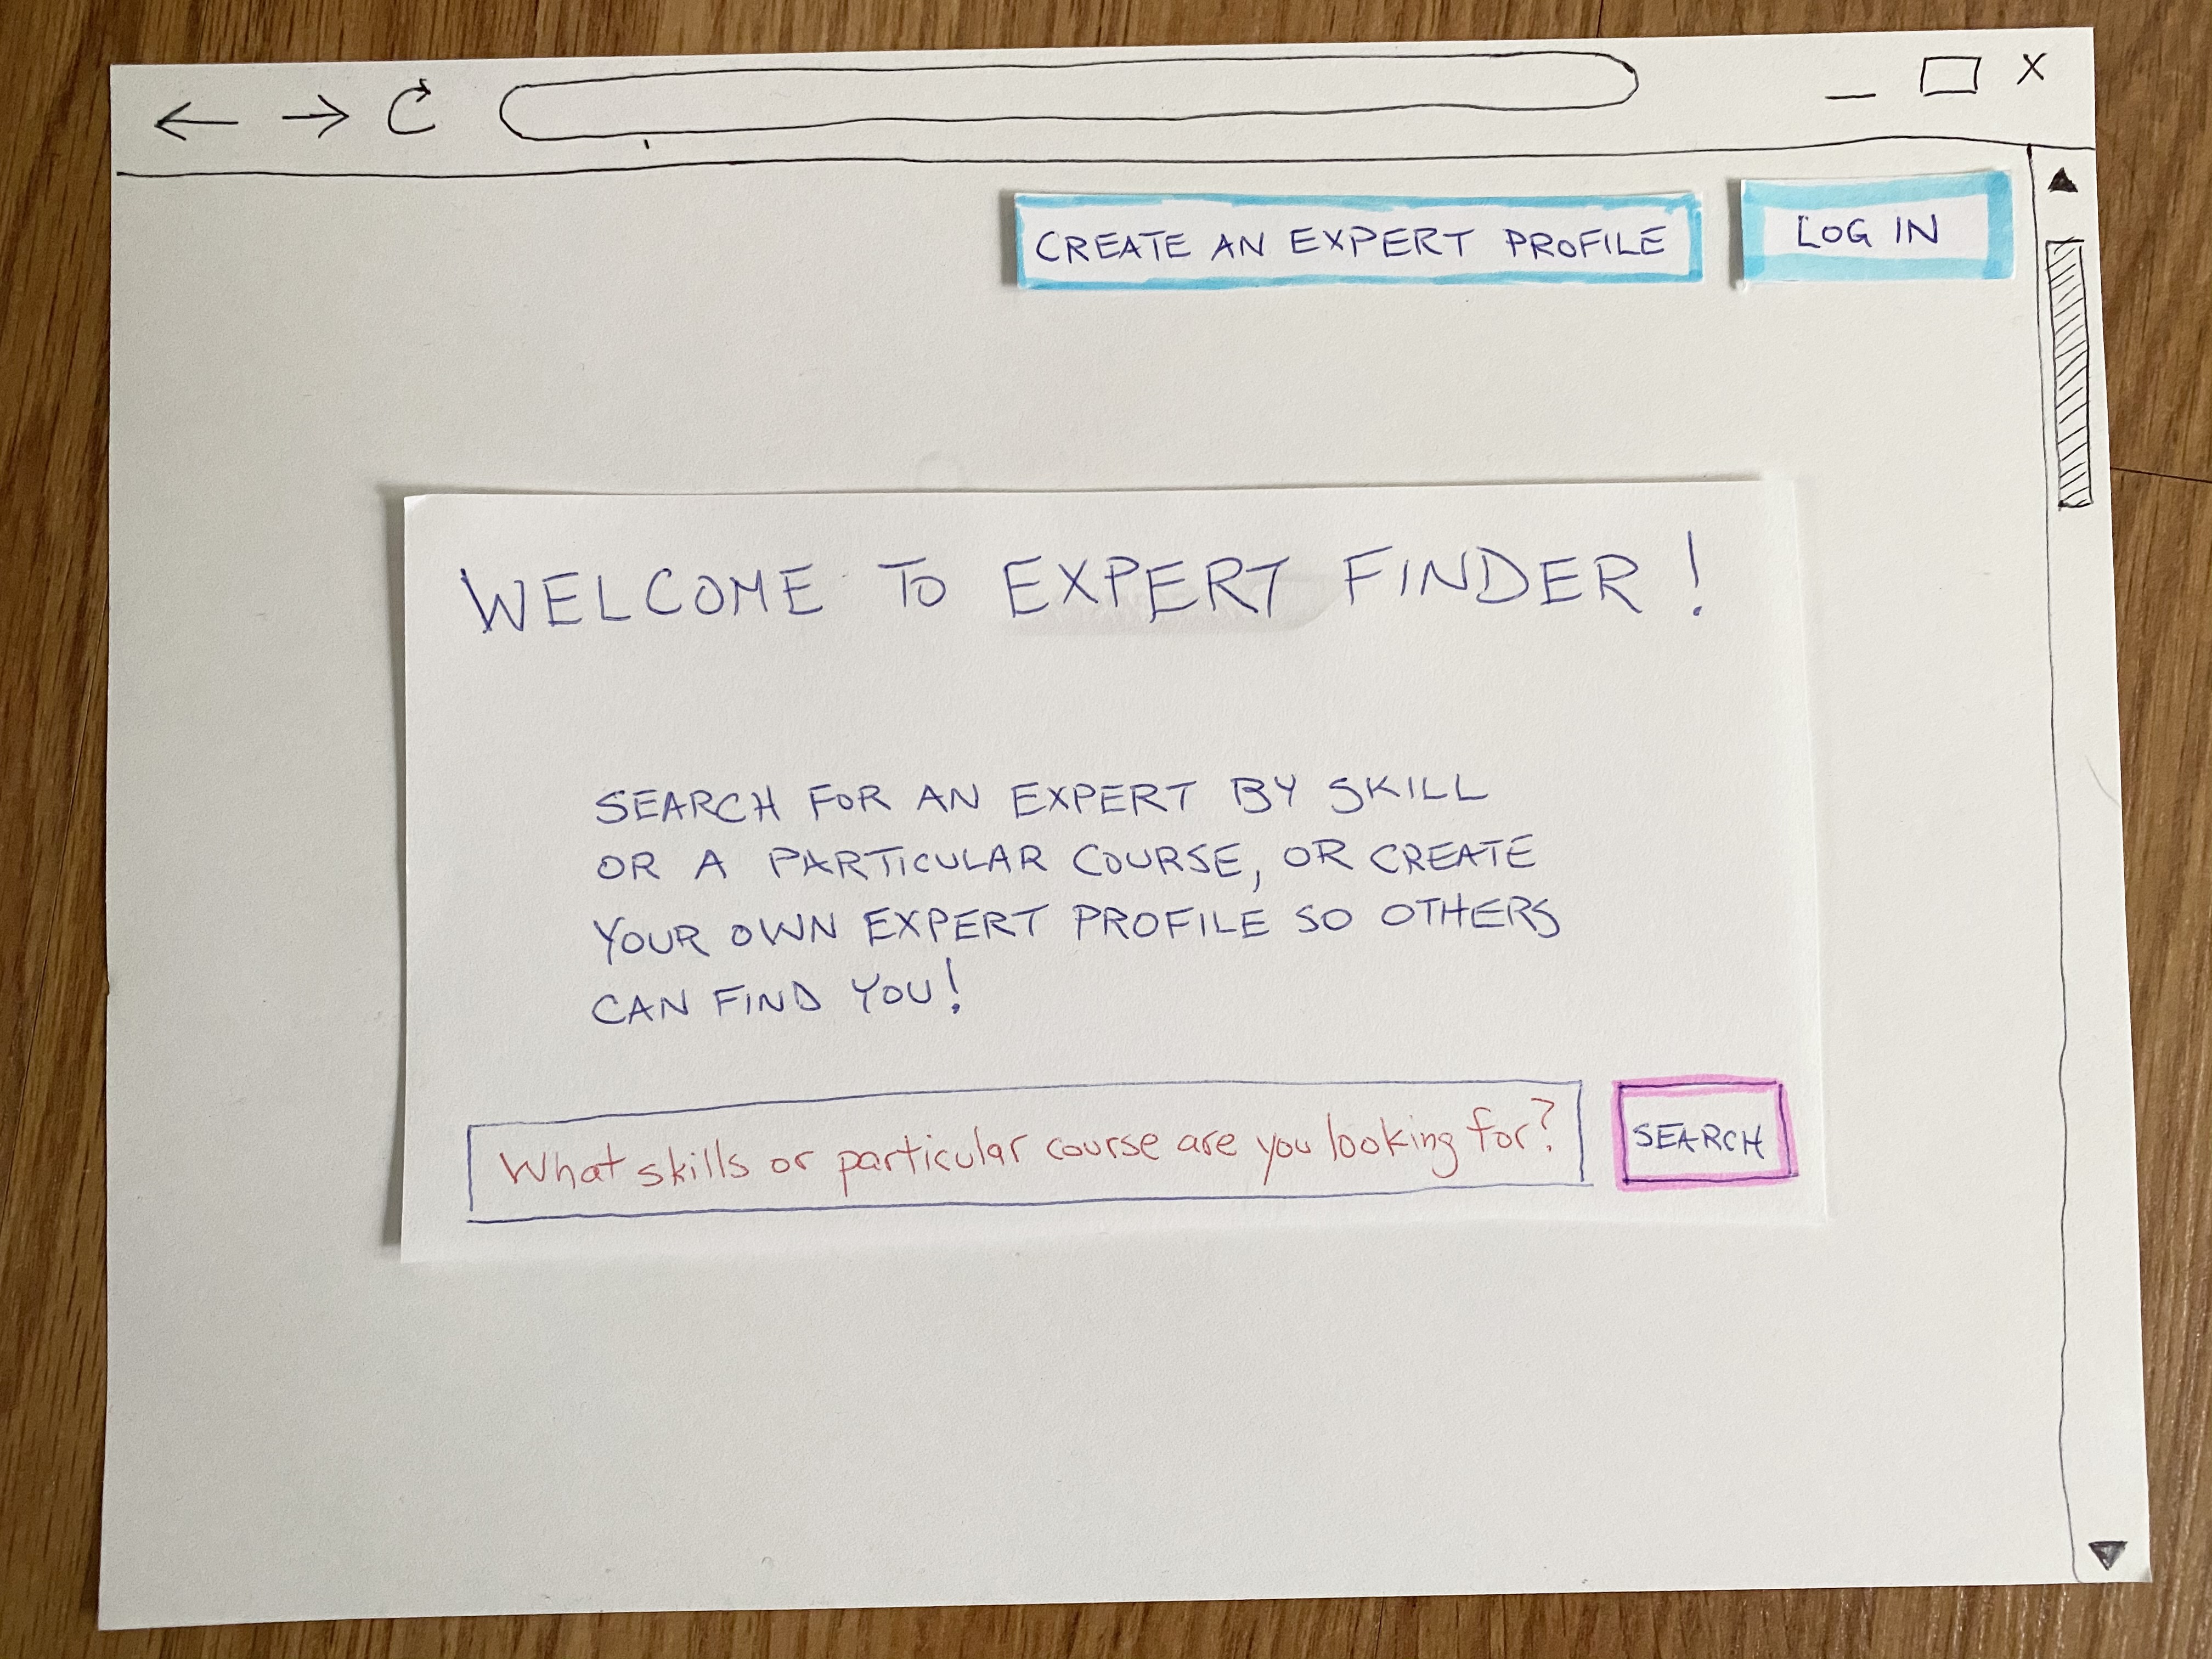 X
CREATE AN EXPERT PROFILE
LOG IN
WELCOME TO EXPERT FINDER!
SEARCH FOR AN EXPERT BY SKILL
OR A PARTICULAR COURSE, OR CREATE
YOUR OWN EXPERT PROFILE SO OTHERS
CAN FIND YOU!
What skills or particular course are you looking for?
SEARCH